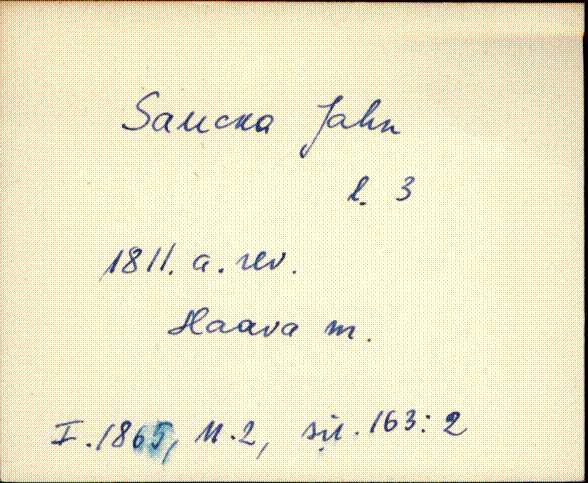 Saucka Jahn
l. 3
1811. a. rev.
Haava m.
I. 1865, n. 2, sü. 163: 2